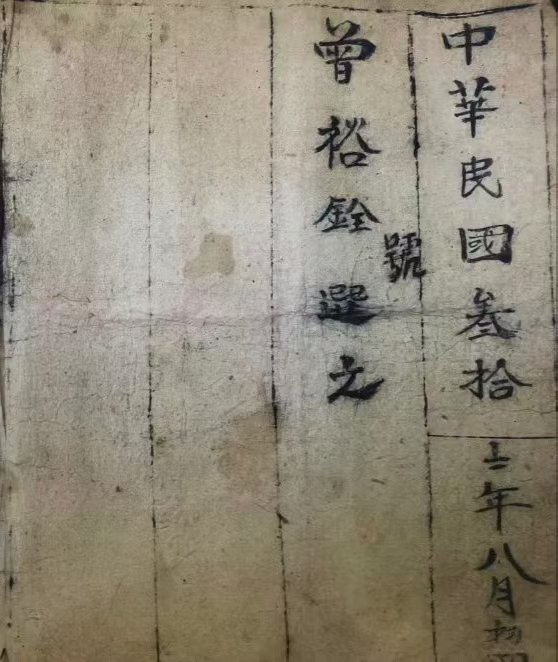 中華民國叁拾年八月初
曾裕銓號選文